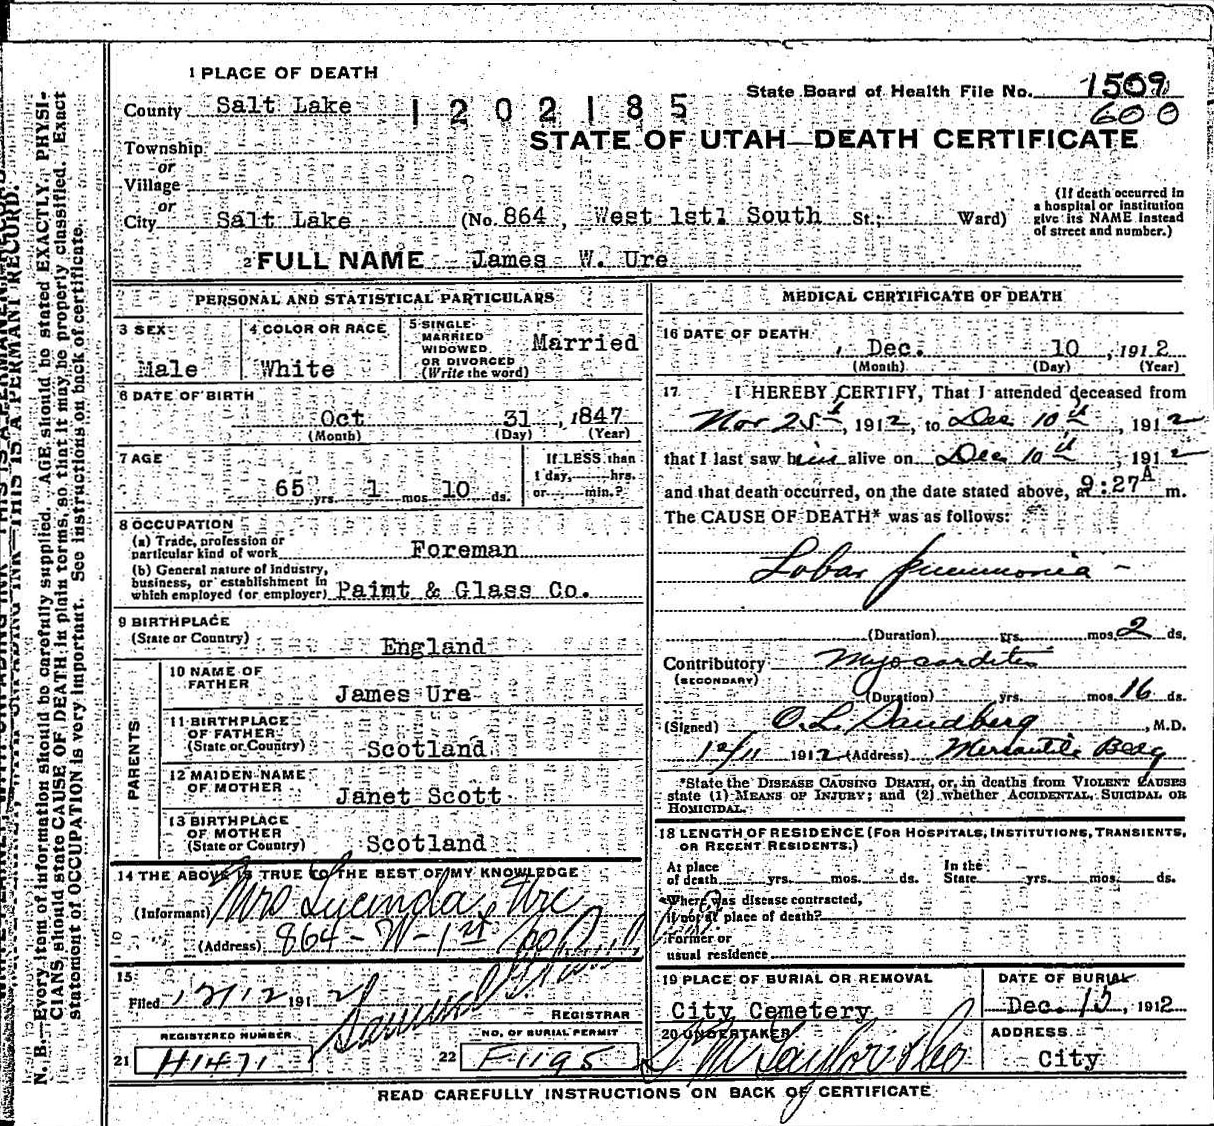 1 PLACE OF DEATH
County Salt Lake 1202185
State Board of Health File No. 1509
600
STATE OF UTAH—DEATH CERTIFICATE
Township
or
Village
or
City Salt Lake (No. 864, West 1st South St.; Ward)
(If death occurred in
a hospital or institution
give its NAME instead
of street and number.)
2 FULL NAME James W. Ure
PERSONAL AND STATISTICAL PARTICULARS
3 SEX
Male
4 COLOR OR RACE
White
5 SINGLE
MARRIED
WIDOWED
OR DIVORCED
(Write the word)
Married
6 DATE OF BIRTH
Oct 31, 1847
(Month) (Day) (Year)
7 AGE
65 yrs. 1 mos 10 ds.
If LESS than
1 day, hrs.
or min.?
8 OCCUPATION
(a) Trade, profession or
particular kind of work Foreman
(b) General nature of industry,
business, or establishment in
which employed (or employer) Paimt & Glass Co.
9 BIRTHPLACE
(State or Country) England
PARENTS
10 NAME OF
FATHER James Ure
11 BIRTHPLACE
OF FATHER
(State or Country) Scotland
12 MAIDEN NAME
OF MOTHER Janet Scott
13 BIRTHPLACE
OF MOTHER
(State or Country) Scotland
14 THE ABOVE IS TRUE TO THE BEST OF MY KNOWLEDGE
(Informant) Mrs Lucinda Ure
(Address) 864 - W - 1st
15
Filed 12/12 1912
REGISTRAR
REGISTERED NUMBER
21 H1471
NO. OF BURIAL PERMIT
22 F1195
MEDICAL CERTIFICATE OF DEATH
16 DATE OF DEATH
Dec. 10, 1912
(Month) (Day) (Year)
17 I HEREBY CERTIFY, That I attended deceased from
Nov 25th, 1912, to Dec 10th, 1912
that I last saw him alive on Dec 10th, 1912
and that death occurred, on the date stated above, at 9:27 A m.
The CAUSE OF DEATH* was as follows:
Lobar pneumonia -
(Duration) yrs. mos. 2 ds.
Contributory Myocarditis
(SECONDARY)
(Duration) yrs. mos. 16 ds.
(Signed) O. L. Sandberg, M.D.
12/11 1912 (Address) Mercantile
*State the DISEASE CAUSING DEATH, or, in deaths from VIOLENT CAUSES
state (1) MEANS OF INJURY; and (2) whether ACCIDENTAL, SUICIDAL OR
HOMICIDAL.
18 LENGTH OF RESIDENCE (FOR HOSPITALS, INSTITUTIONS, TRANSIENTS,
OR RECENT RESIDENTS.)
At place
of death yrs. mos. ds.
In the
State yrs. mos. ds.
Where was disease contracted,
if not at place of death?
Former or
usual residence
19 PLACE OF BURIAL OR REMOVAL
City Cemetery
DATE OF BURIAL
Dec. 15, 1912
20 UNDERTAKER
ADDRESS
City
READ CAREFULLY INSTRUCTIONS ON BACK OF CERTIFICATE
THIS IS A PERMANENT RECORD.
N. B.—Every item of information should be carefully supplied. AGE should be stated EXACTLY. PHYSI-
CIANS should state CAUSE OF DEATH in plain terms, so that it may be properly classified. Exact
statement of OCCUPATION is very important. See instructions on back of certificate.